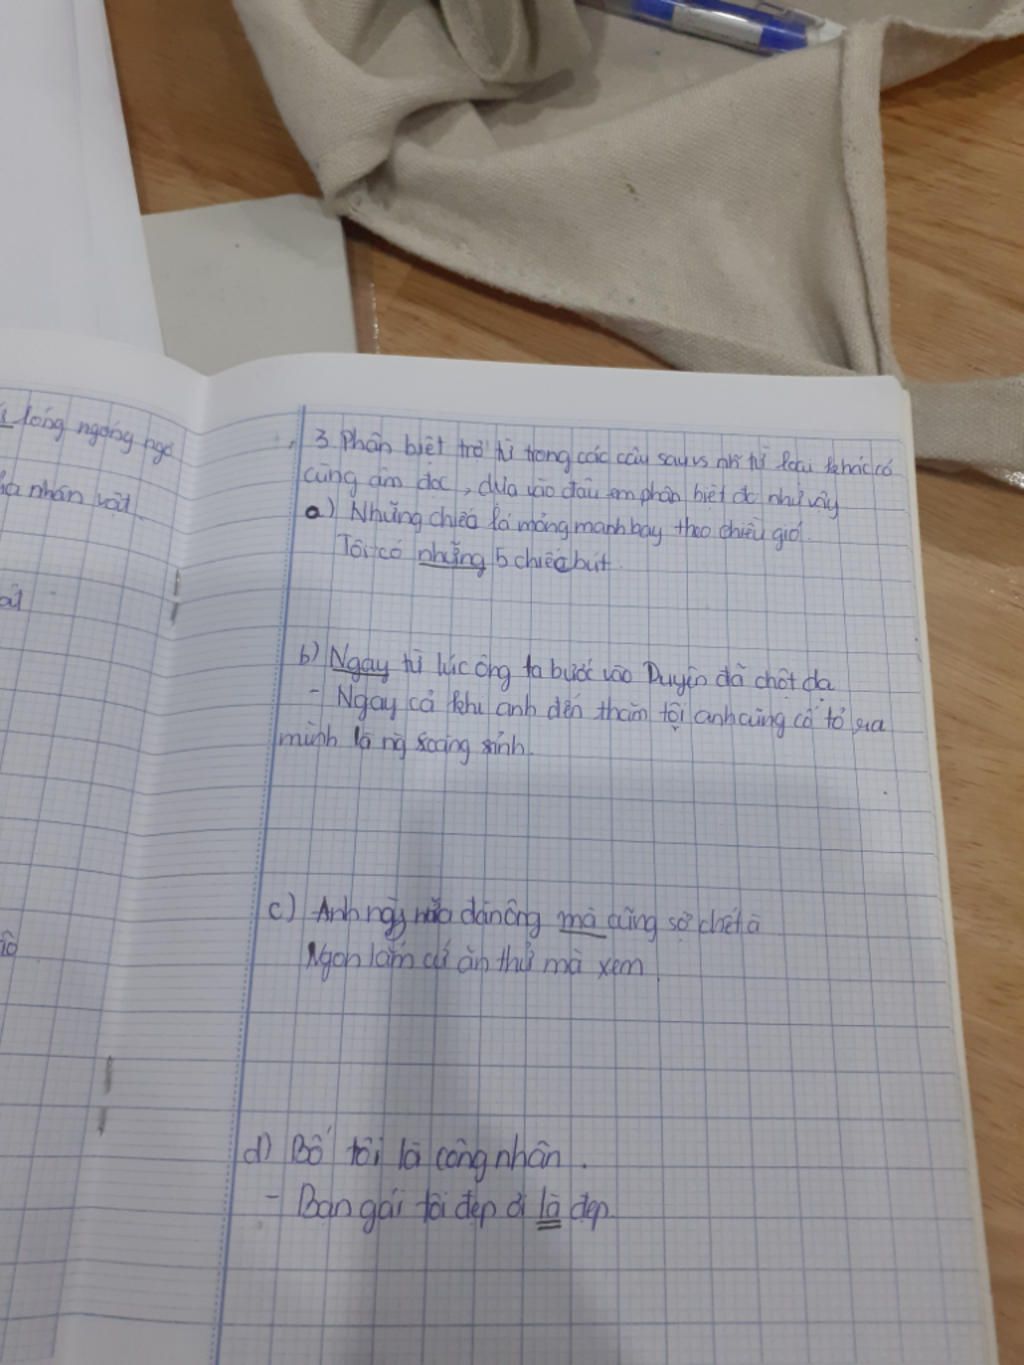 lóng ngóng ngó
nhân vật
3. Phân biệt trợ từ trong các câu sau vs nh từ loại khác có
cùng âm đọc, dựa vào đâu em phân biệt đc như vậy
a) Những chiếc lá mỏng manh bay theo chiều gió.
Tôi có những 5 chiếc bút.
b) Ngay từ lúc ông ta bước vào Duyên đã chột dạ
- Ngay cả khi anh đến thăm tôi anh cũng cố tỏ ra
mình là ng sòng sính.
c) Anh này đàn ông mà cũng sợ chết à
Ngon lắm cứ ăn thử mà xem.
d) Bố tôi là công nhân.
- Bạn gái tôi đẹp ơi là đẹp.